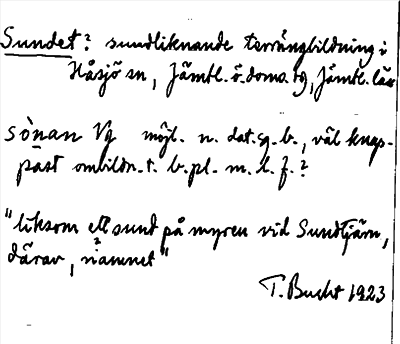 Sundet? sundliknande terrängbildning i
Håsjö sn, Jämtl. ö. doms. tg, Jämtl. län
sònan Vg möjl. n. dat. sg. b., väl knap-
past ombildn. t. b. pl. m. l. f.?
"liksom ett sund på myren vid Sundtjärn,
därav, namnet"
T. Bucht 1923